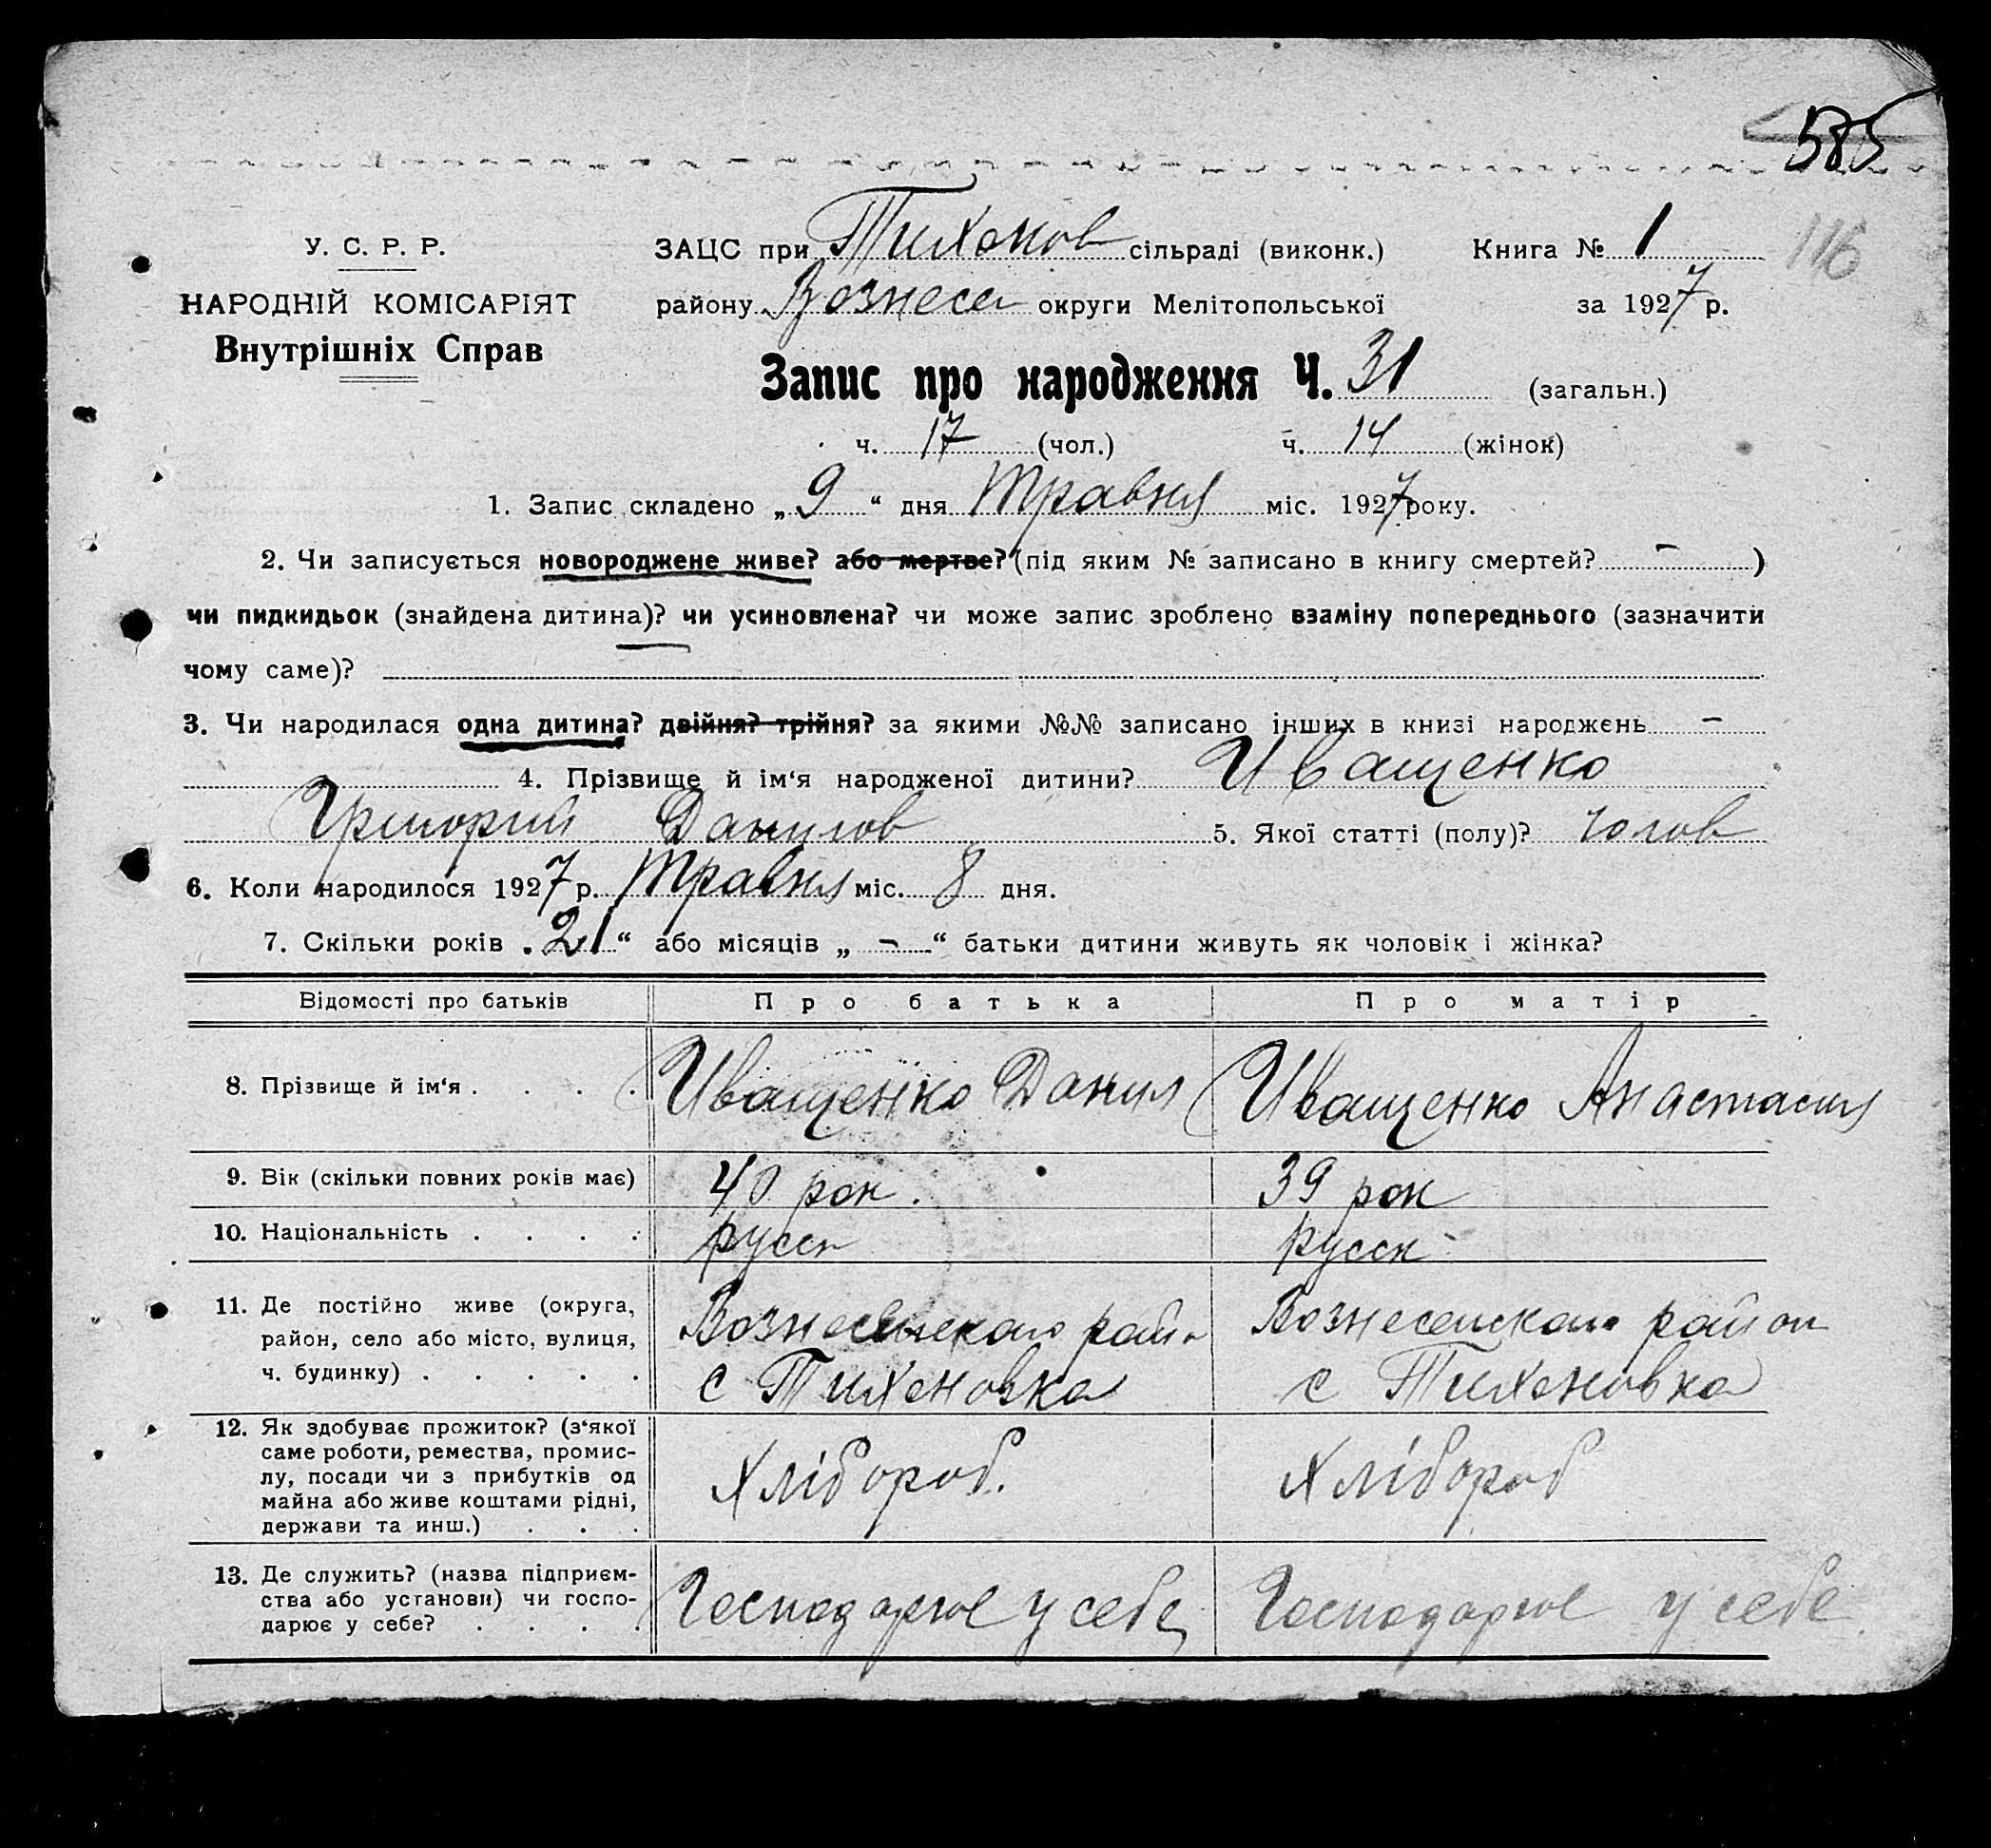 585
116
У. С. Р. Р.
НАРОДНІЙ КОМІСАРІЯТ
Внутрішніх Справ
ЗАЦС при Тихонов сільраді (виконк.) Книга № 1
району Вознесен округи Мелітопольської за 1927 р.
Запис про народження Ч. 31 (загальн.)
ч. 17 (чол.) ч. 14 (жінок)
1. Запис складено „ 9 “ дня Травня міс. 1927 року.
2. Чи записується новороджене живе? або мертве? (під яким № записано в книгу смертей? – )
чи пидкидьок (знайдена дитина)? чи усиновлена? чи може запис зроблено взаміну попереднього (зазначити
чому саме)?
3. Чи народилася одна дитина? двійня? трійня? за якими №№ записано інших в книзі народжень –
4. Прізвище й ім‘я народженої дитини? Иващенко
Григорий Данилов 5. Якої статті (полу)? чолов
6. Коли народилося 1927 р. Травня міс. 8 дня.
7. Скільки років „ 21 “ або місяців „ – “ батьки дитини живуть як чоловік і жінка?
Відомості про батьків Про батька Про матір
8. Прізвище й ім‘я . . . . Иващенко Данил Иващенко Анастасия
9. Вік (скільки повних років має) 40 рок. 39 рок
10. Національність . . . . русск русск
11. Де постійно живе (округа,
район, село або місто, вулиця,
ч. будинку) . . . . .
Вознесенскаго райн
с Тихоновка
Вознесенскаго район
с Тихоновка
12. Як здобуває прожиток? (з‘якої
саме роботи, ремества, промис-
лу, посади чи з прибутків од
майна або живе коштами рідні,
держави та инш.) . . .
Хлібороб.
Хлібороб
13. Де служить? (назва підприєм-
ства або установи) чи госпо-
дарює у себе? . . . .
Господарює у себе
Господарює у себе